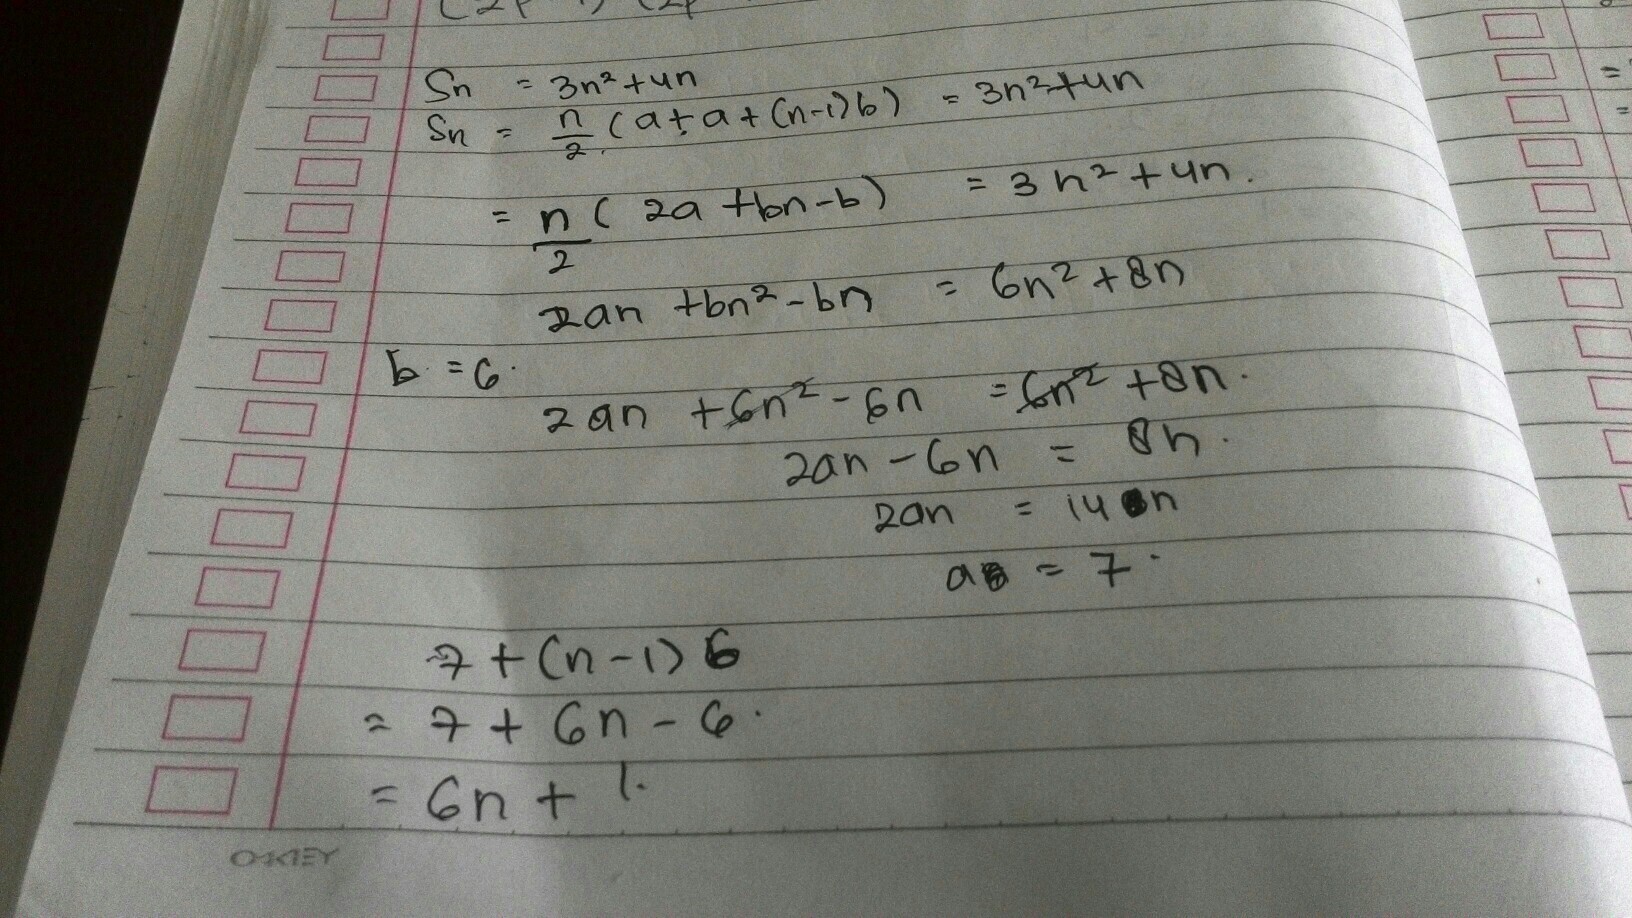 Sn = 3n²+4n
Sn = n/2 (a+a+(n-1)b) = 3n²+4n
= n/2 (2a+bn-b) = 3n²+4n.
2an +bn²-bn = 6n²+8n
b = 6.
2an +6n²-6n = 6n²+8n.
2an-6n = 8n.
2an = 14n
a = 7.
7+(n-1)6
= 7+6n-6.
= 6n+1.
OKEY